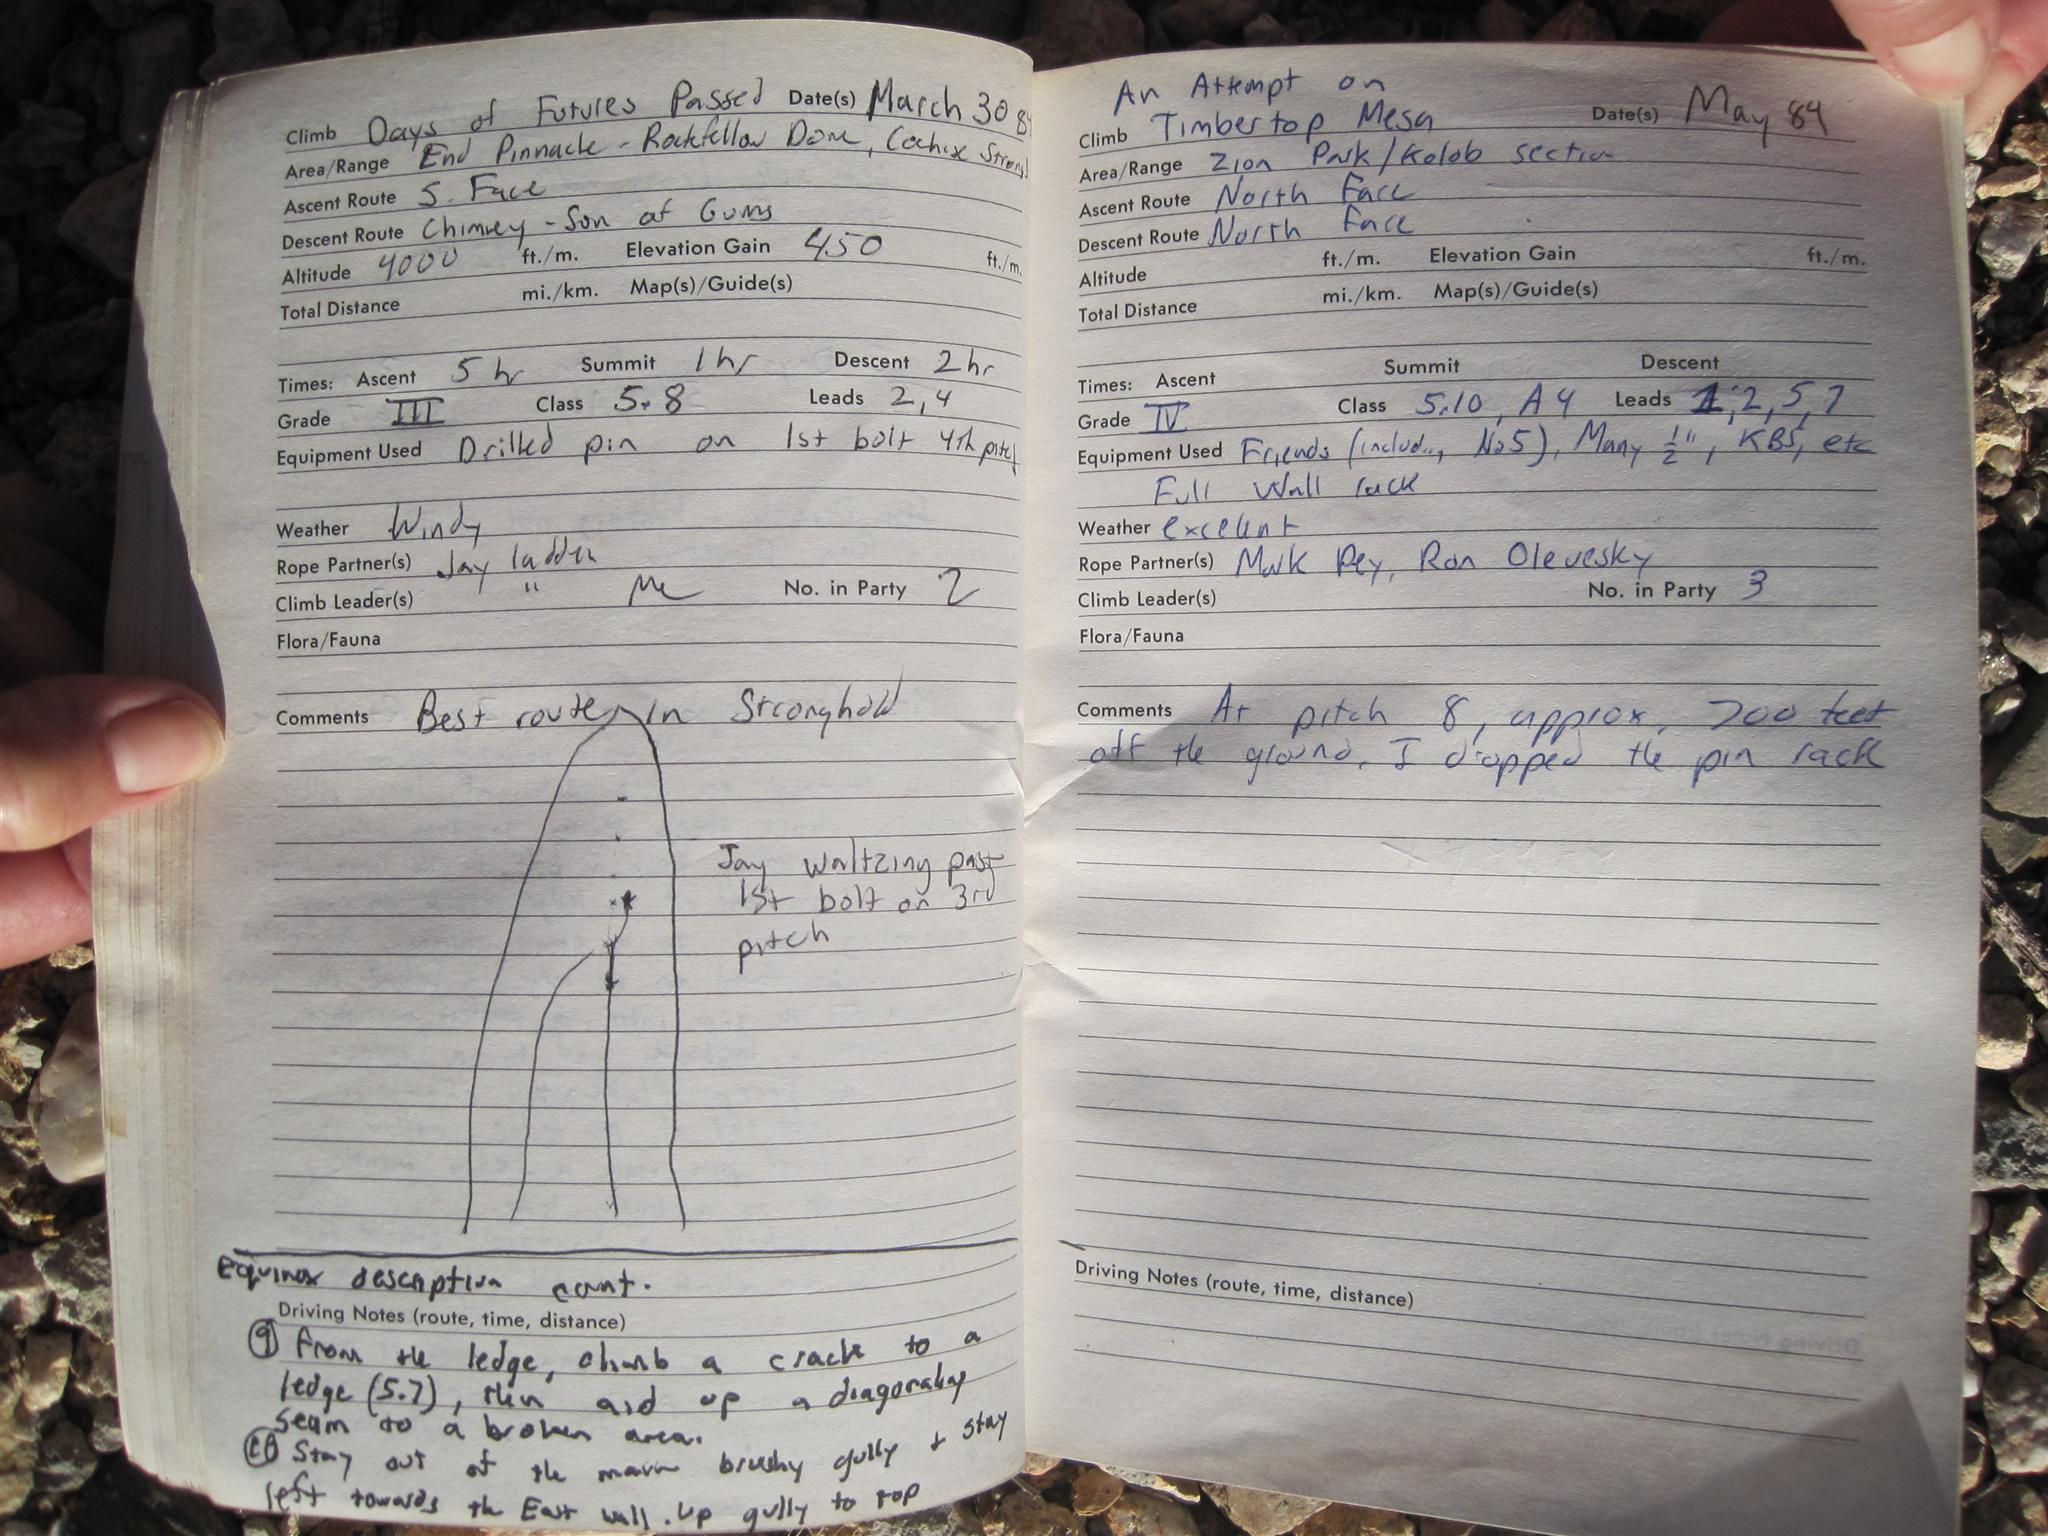 Climb Days of Futures Passed Date(s) March 30 84
Area/Range End Pinnacle - Rockfellow Dome, Cochise Strong
Ascent Route S. Face
Descent Route Chimney - Son of Guns
Altitude 4000 ft./m. Elevation Gain 450 ft./m.
Total Distance mi./km. Map(s)/Guide(s)
Times: Ascent 5 hr Summit 1 hr Descent 2 hr
Grade III Class 5.8 Leads 2, 4
Equipment Used Drilled pin on 1st bolt 4th pitch
Weather Windy
Rope Partner(s) Jay ladden
Climb Leader(s) " Me No. in Party 2
Flora/Fauna
Comments Best route in Stronghold
Jay waltzing past
1st bolt on 3rd
pitch
Equinox description cont.
Driving Notes (route, time, distance)
9 From the ledge, climb a crack to a
ledge (5.7), then aid up a diagonaling
seam to a broken area.
10 Stay out of the main brushy gully + stay
left towards the East wall. Up gully to top
An Attempt on
Climb Timbertop Mesa Date(s) May 84
Area/Range Zion Park/Kolob section
Ascent Route North Face
Descent Route North Face
Altitude ft./m. Elevation Gain ft./m.
Total Distance mi./km. Map(s)/Guide(s)
Times: Ascent Summit Descent
Grade IV Class 5.10, A4 Leads 1, 2, 5, 7
Equipment Used Friends (includ.., No5), Many 1/2", KBS, etc
Full Wall rack
Weather excelent
Rope Partner(s) Mark Pey, Ron Olevesky
Climb Leader(s) No. in Party 3
Flora/Fauna
Comments At pitch 8, approx. 700 feet
off the ground, I dropped the pin rack
Driving Notes (route, time, distance)